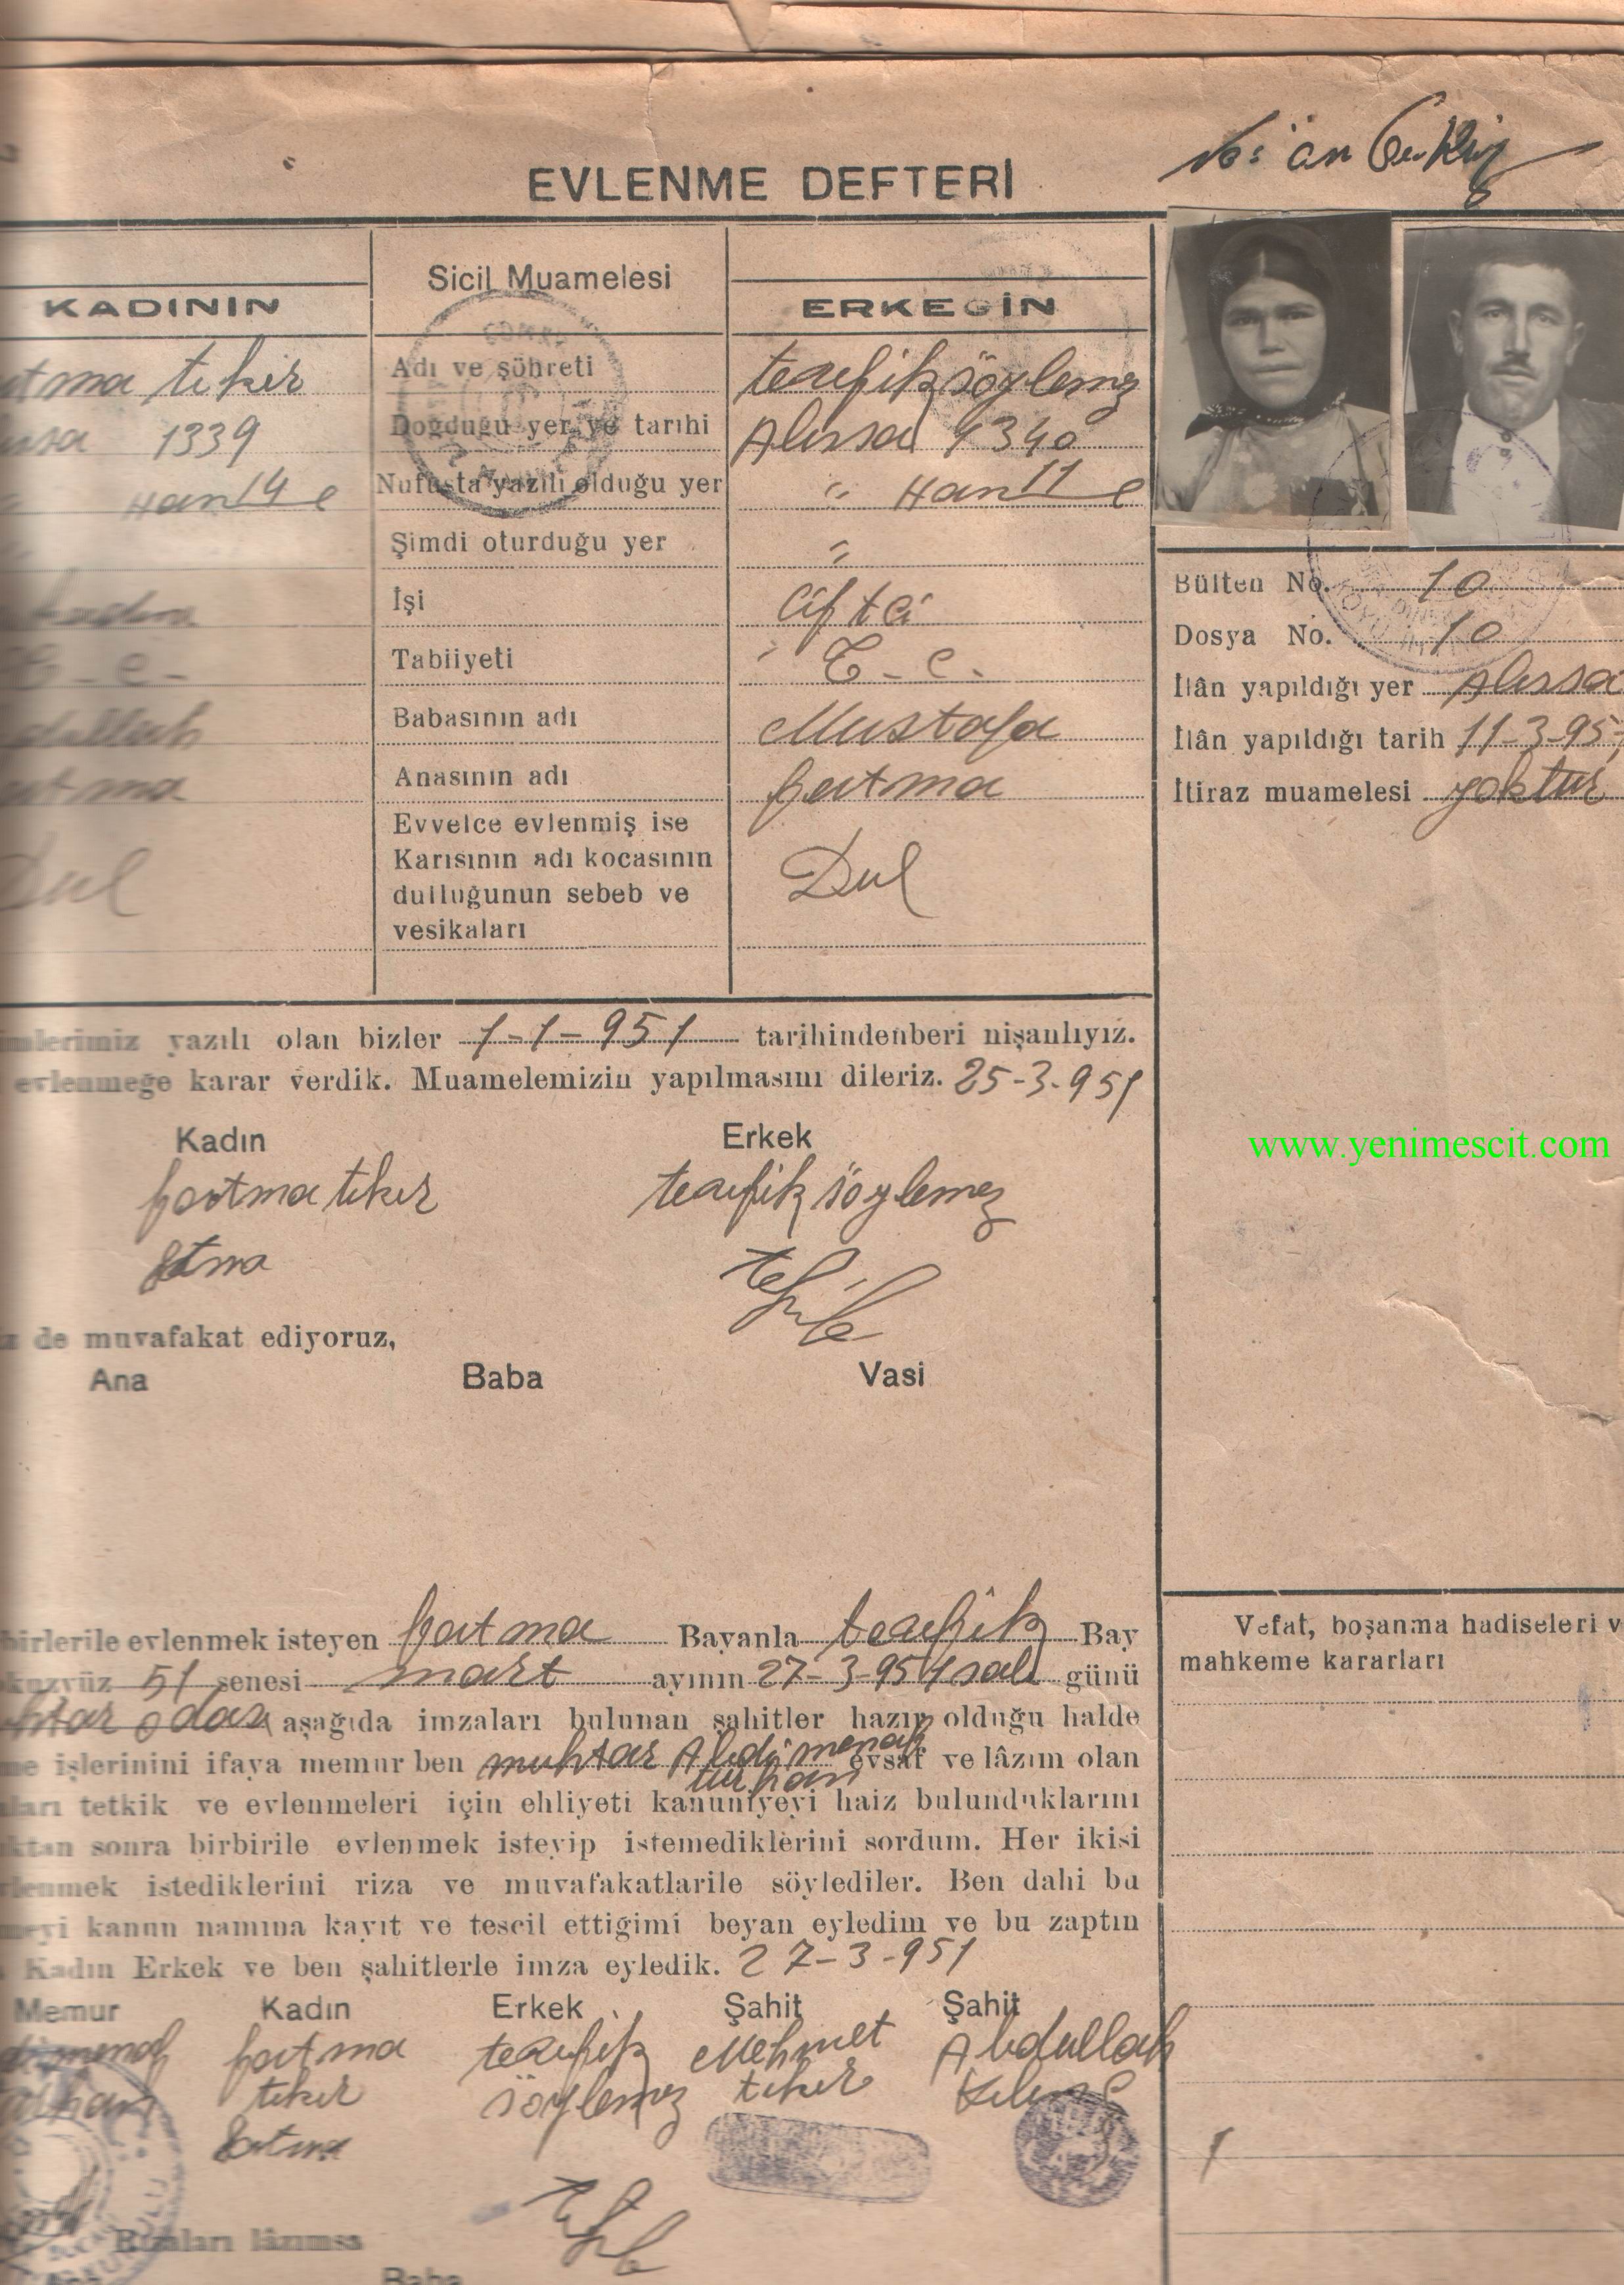 EVLENME DEFTERİ
KADININ
Sicil Muamelesi
ERKEĞİN
tma tıkır
Adı ve şöhreti
tevfik söylemez
1339
Doğduğu yer ve tarihi
Alıssa 1340
" Han 14 e
Nufusta yazılı olduğu yer
" Han 11 e
Şimdi oturduğu yer
"
İşi
Çiftci
T - C -
Tabiiyeti
T - C -
dullah
Babasının adı
Mustafa
atma
Anasının adı
fatma
Dul
Evvelce evlenmiş ise
Karısının adı kocasının
dulluğunun sebeb ve
vesikaları
Dul
Bülten No. 10
Dosya No. 10
İlân yapıldığı yer Alıssa
İlân yapıldığı tarih 11-3-95
İtiraz muamelesi yoktur
imlerimiz yazılı olan bizler 1-1-951 tarihindenberi nişanlıyız.
evlenmeğe karar verdik. Muamelemizin yapılmasını dileriz. 25-3-951
Kadın Erkek
fatma tıkır tevfik söylemez
fatma
z de muvafakat ediyoruz,
Ana Baba Vasi
www.yenimescit.com
birlerile evlenmek isteyen fatma Bayanla tevfik Bay
kuzyüz 51 senesi mart ayının 27-3-951 salı günü
htar odası aşağıda imzaları bulunan şahitler hazır olduğu halde
me işlerinini ifaya memur ben muhtar Abdimenaf evsaf ve lâzım olan
turhan
ları tetkik ve evlenmeleri için ehliyeti kanuniyeyi haiz bulunduklarını
ktan sonra birbirile evlenmek isteyip istemediklerini sordum. Her ikisi
lenmek istediklerini riza ve muvafakatlarile söylediler. Ben dahi bu
meyi kanun namına kayıt ve tescil ettiğimi beyan eyledim ve bu zaptın
Kadın Erkek ve ben şahitlerle imza eyledik. 27-3-951
Vefat, boşanma hadiseleri v
mahkeme kararları
Memur Kadın Erkek Şahit Şahit
dimenaf fatma tevfik Mehmet Abdullah
turhan tıkır söylemez tıkır Kılınç
fatma
Rızaları lâzımsa
Baba